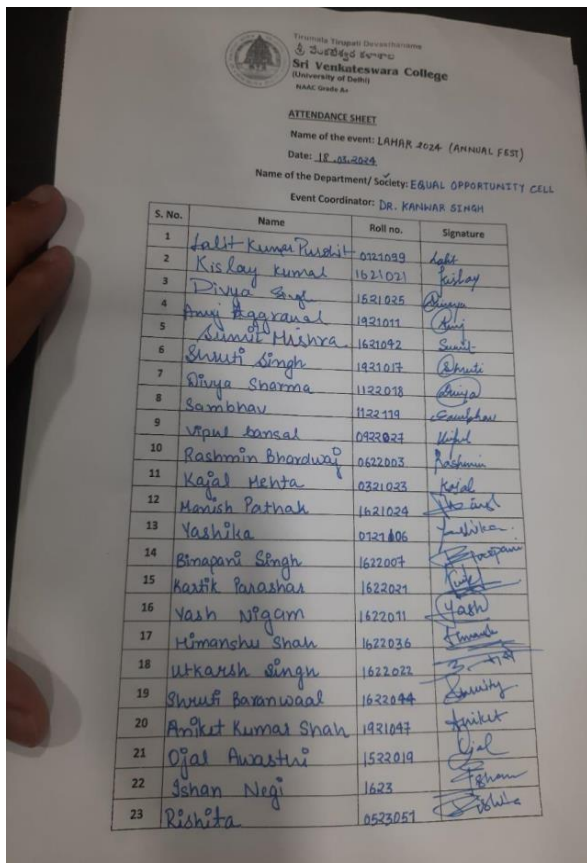 Tirumala Tirupati Devasthanams
శ్రీ వేంకటేశ్వర కళాశాల
Sri Venkateswara College
(University of Delhi)
NAAC Grade A+
ATTENDANCE SHEET
Name of the event: LAHAR 2024 (ANNUAL FEST)
Date: 18.03.2024
Name of the Department/ Society: EQUAL OPPORTUNITY CELL
Event Coordinator: DR. KANWAR SINGH
S. No. Name Roll no. Signature
1 Lalit Kumar Purohit 0121099 Lalit
2 Kislay Kumar 1621021 Kislay
3 Divya Singh 1521025 Divya
4 Anuj Aggrawal 1921011 Anuj
5 Sumit Mishra 1621042 Sumit
6 Shruti Singh 1921017 Shruti
7 Divya Sharma 1122018 Divya
8 Sambhav 1122119 Sambhav
9 Vipul bansal 0922027 Vipul
10 Rashmin Bhardwaj 0622003 Rashmin
11 Kajal Mehta 0321023 Kajal
12 Manish Pathak 1621024
13 Yashika 0121106 Yashika
14 Binapani Singh 1622007 Binapani
15 Kartik Parashar 1622021
16 Yash Nigam 1622011 Yash
17 Himanshu Shah 1622036
18 Utkarsh Singh 1622022
19 Shruti Baranwaal 1622044
20 Aniket Kumar Shah 1921047 Aniket
21 Ojal Awasthi 1522019 Ojal
22 Ishan Negi 1623 Ishan
23 Rishita 0523051 Rishita